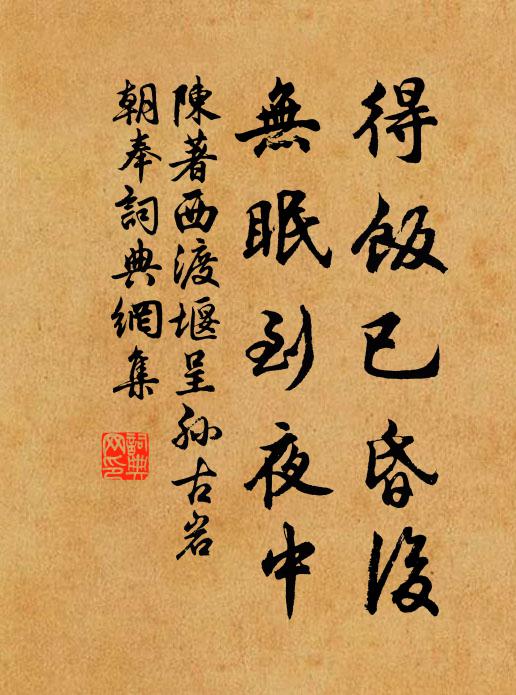 得飯已昏後
無眠到夜中
陳著西渡堰呈孫古岩
朝奉詞典網集
詞典网印